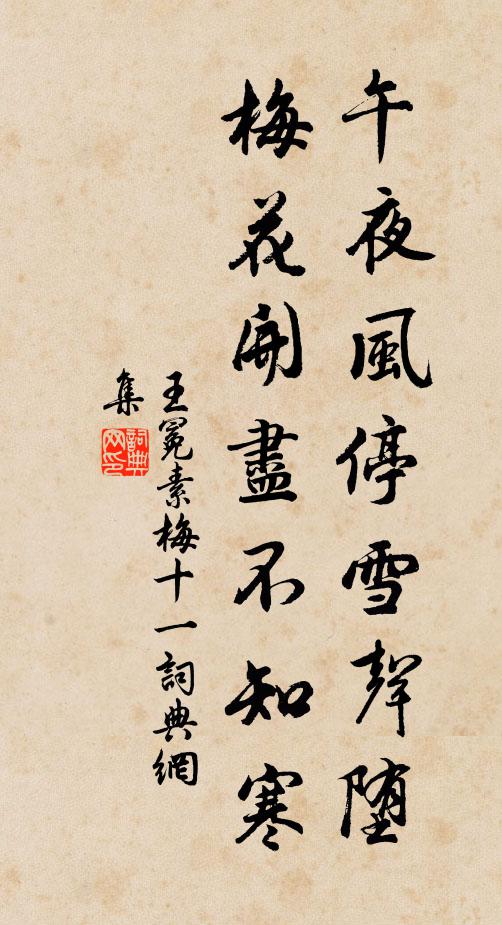 午夜風停雪聲堕
梅花開盡不知寒
王冕素梅十一詞典網
集
詞典
网印